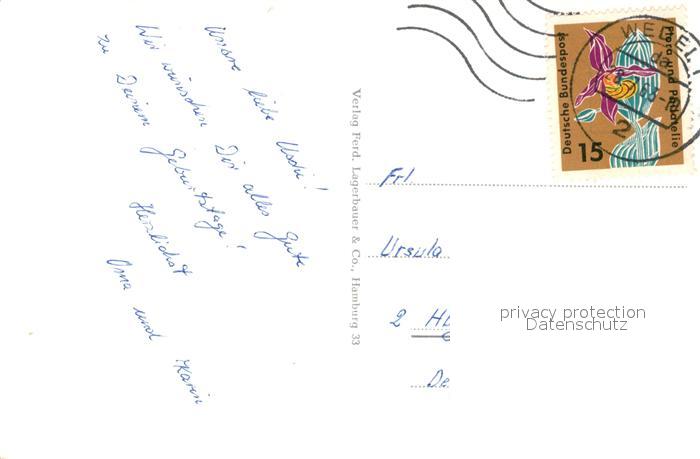 Unsere liebe Uschi!
Wir wünschen Dir alles Gute
zu Deinem Geburtstage!
Herzlichst
Oma und Karin
Verlag Ferd. Lagerbauer & Co., Hamburg 33
Deutsche Bundespost
Flora und Philatelie
15
2
Frl.
Ursula
2 Hb
De
privacy protection
Datenschutz